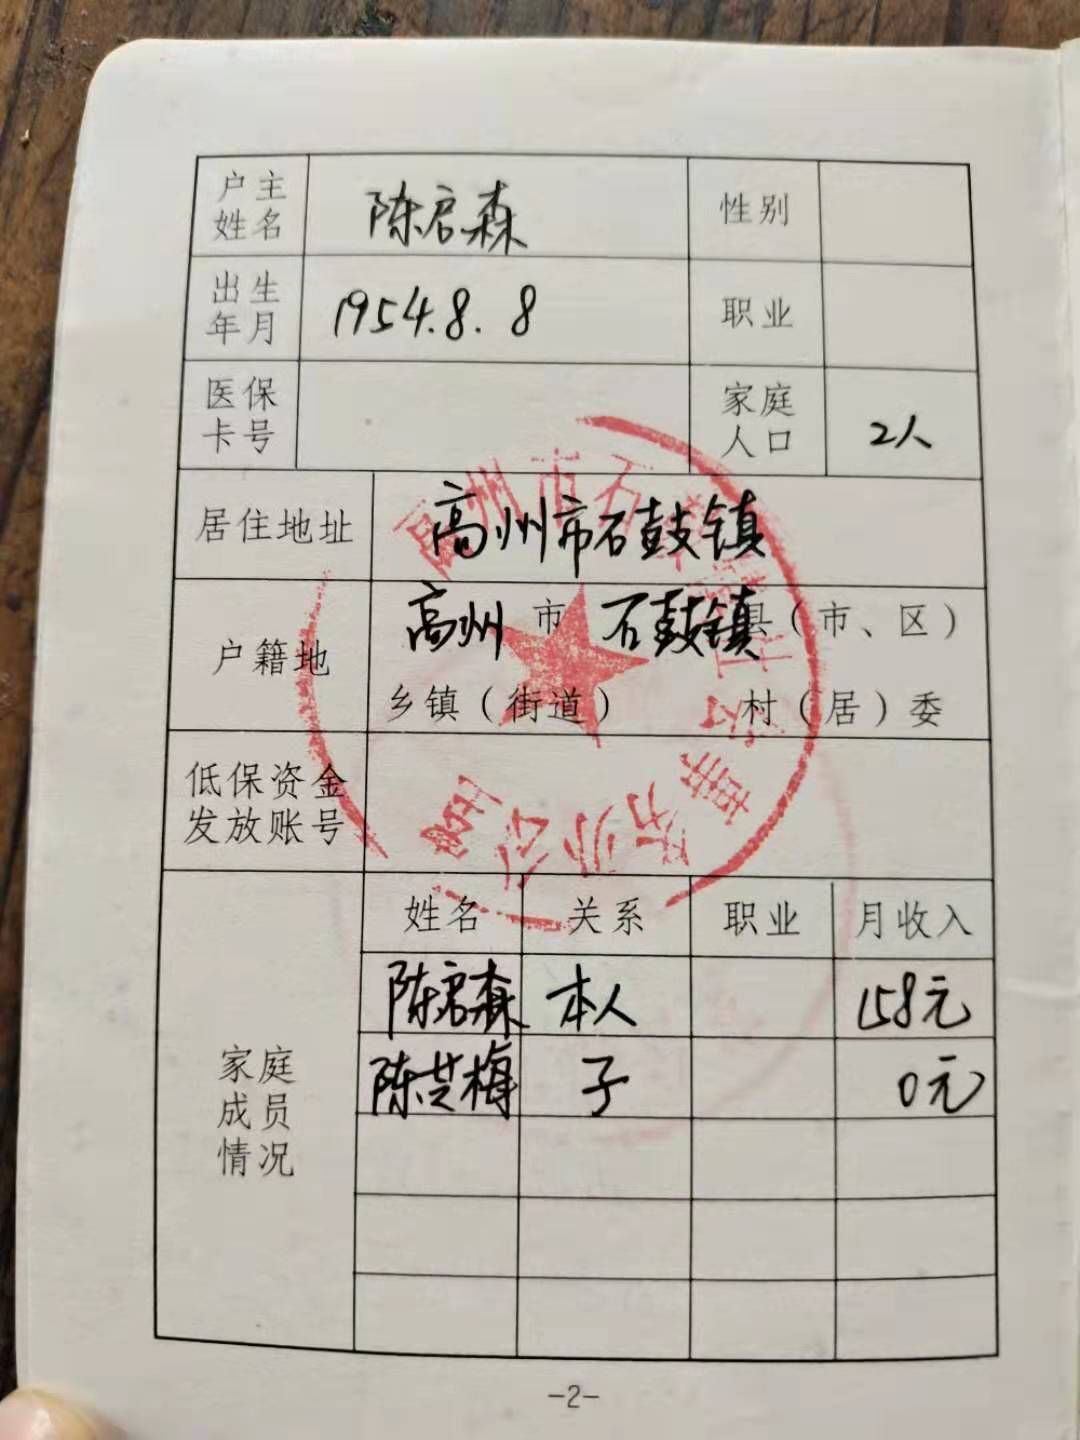 户主姓名 陈启森 性别
出生年月 1954.8.8 职业
医保卡号 家庭人口 2人
居住地址 高州市石鼓镇
户籍地 高州市 石鼓镇县（市、区）
乡镇（街道） 村（居）委
低保资金发放账号
家庭成员情况
姓名 关系 职业 月收入
陈启森 本人 158元
陈芸梅 子 0元
-2-